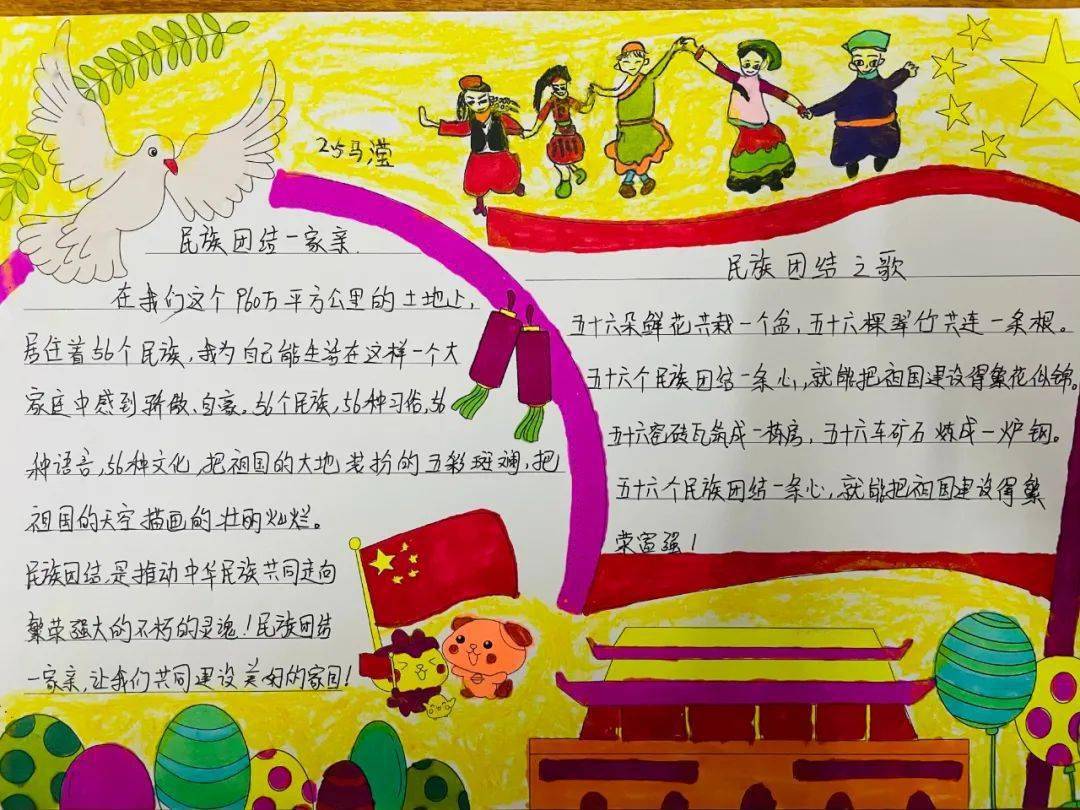 25马滢
民族团结一家亲
在我们这个960万平方公里的土地上,
居住着56个民族,我为自己能生活在这样一个大
家庭中感到骄傲、自豪。56个民族,56种习俗,56
种语言,56种文化,把祖国的大地装扮的五彩斑斓,把
祖国的天空描画的壮丽灿烂。
民族团结,是推动中华民族共同走向
繁荣强大的不朽的灵魂!民族团结
一家亲,让我们共同建设美好的家园!
民族团结之歌
五十六朵鲜花共栽一个盆,五十六棵翠竹共连一条根。
五十六个民族团结一条心,就能把祖国建设得繁花似锦。
五十六窑砖瓦筑成一栋房,五十六车矿石炼成一炉钢。
五十六个民族团结一条心,就能把祖国建设得繁
荣富强!